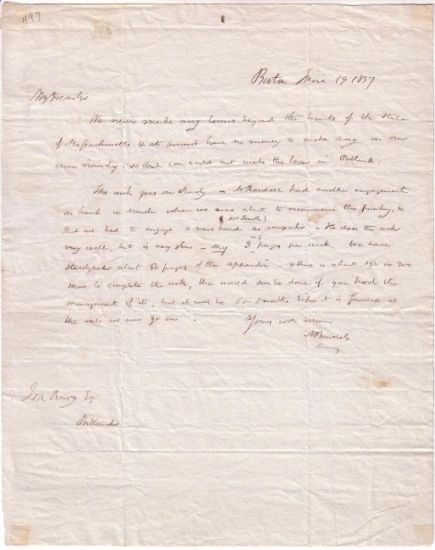 1197
Boston 19 1837
My Dear Sir
We never make any loans beyond the limits of the State
of Massachusetts & at present have no money to make any in our
own vicinity, so that we could not make the loan in Portland.
The work goes on slowly - had another engagement
on hand in when we were about to recommence the printing, so
that we had to engage a new hand as compositor - He does the work
(Mr Smith)
very well but is very slow - 3 pages per week. We have
stereotyped about 80 pages of the appendix - & there is about 150 or 200
more to complete the work, this would sooner be done if you had the
management of it, but it will be 6 or 8 months before it is finished at
the rate we now go on.
Yours
Esq
Portland